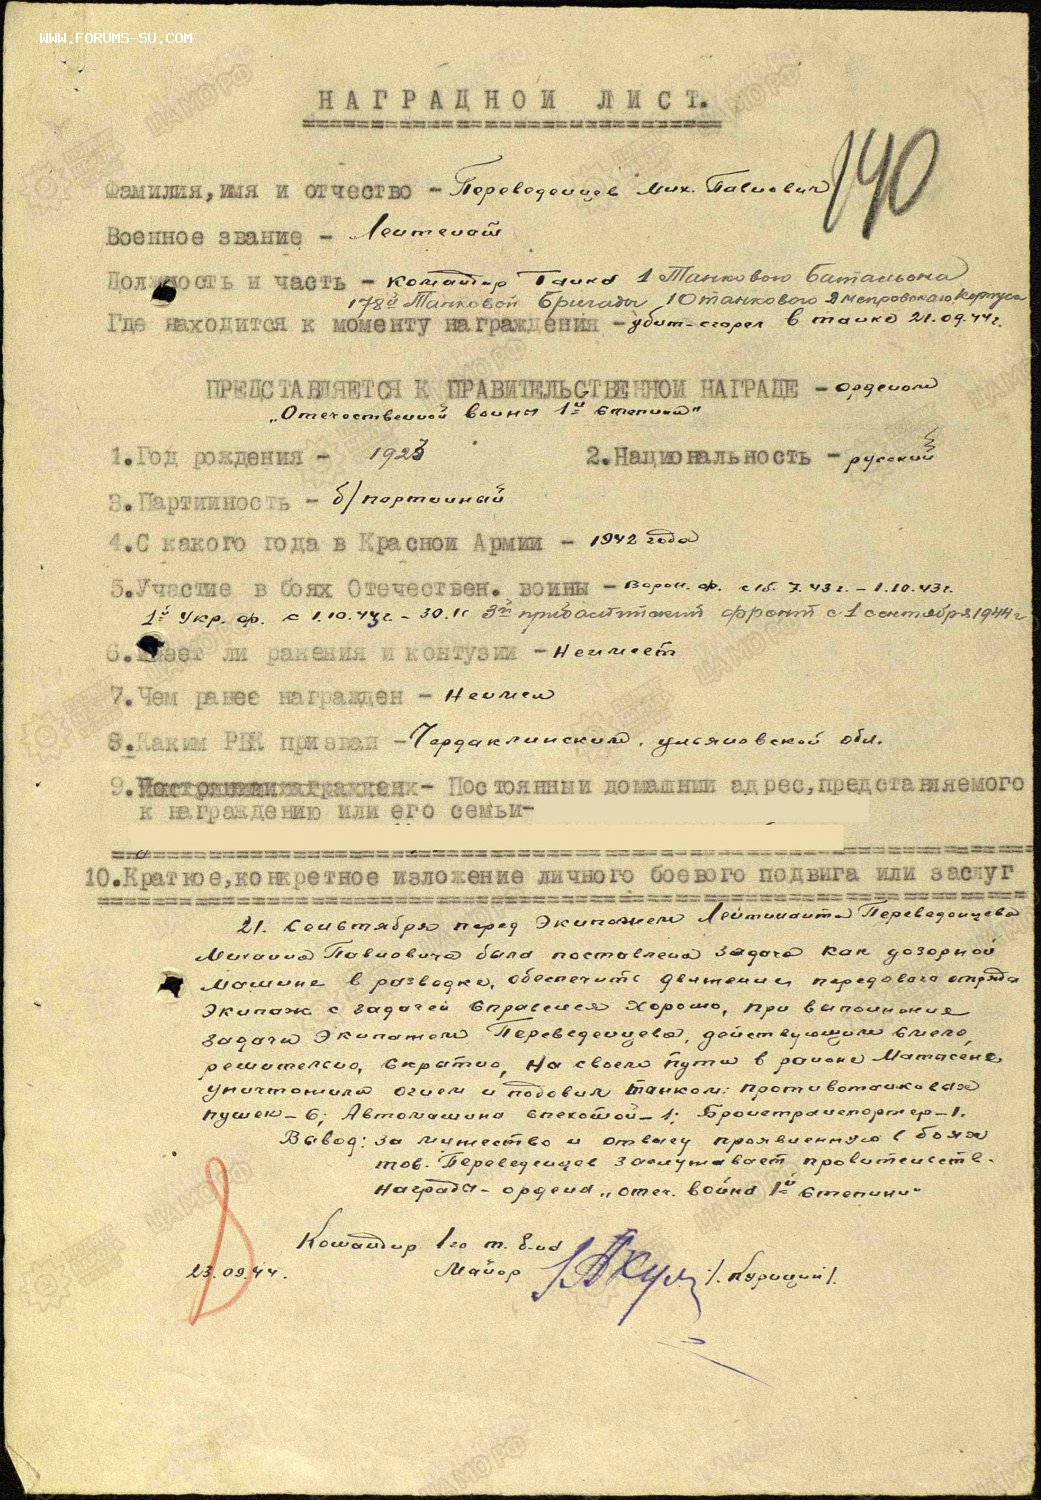 WWW.FORUMS-SU.COM
НАГРАДНОЙ ЛИСТ.
190
Фамилия, имя и отчество - Переведенцев Мих. Павлович
Военное звание - Лейтенант
Должность и часть - командир Танка 1 Танкового Батальона
178й Танковой Бригады 10 танкового Днепровского Корпуса
Где находится к моменту награждения - убит-сгорел в танке 21.09.44г.
ПРЕДСТАВЛЯЕТСЯ К ПРАВИТЕЛЬСТВЕННОЙ НАГРАДЕ - орденом
„Отечественной войны 1й степени"
1.Год рождения - 1923
2.Национальность - русский
3.Партийность - б/партийный
4.С какого года в Красной Армии - 1942 года
5.Участие в боях Отечествен. войны - Ворон. ф. с 16. 7. 43г. - 1.10.43г.
1й Укр. ф. с 1.10.43г. - 30.11 3й прибалтитский фронт с 1 сентября 1944г
6.Имеет ли ранения и контузии - Неимеет
7.Чем ранее награжден - Неимел
8.Каким РВК призван - Чердаклинским, ульяновской обл.
9. - Постоянный домашний адрес,представляемого
к награждению или его семьи-
10.Краткое,конкретное изложение личного боевого подвига или заслуг
21. Сентября перед Экипажем Лейтинанта Переведенцева
Михаила Павловича была поставлена задача как дозорной
машине в разведке, обеспечить движения передового отряда
Экипаж с задачей справился хорошо, при выполнение
задачи Экипажем Переведенцева, действующим смело,
решительно, скрытно, на своем пути в районе Матасене
уничтожила огнем и подовил танком: противотанковая
пушек - 6; Автомашина спехотой - 1; Бронетранспортер - 1.
Вывод: за мужество и отвагу проявленную в боях
тов. Переведенцев заслуживает провительств.
Награда - ордена „отеч. война 1й степини"
Командир 1го т. б-на
23.09.44. Майор /. Курицин /.